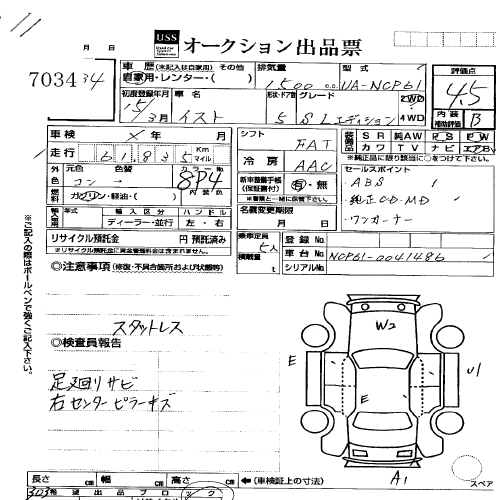 USS オークション出品票
月 日
70344
車歴 (未記入は自家用) その他
自家用・レンター・( )
排気量 1500 cc
型式 UA-NCP61
評価点 4.5
初度登録年月 15年3月
車名 イスト
形状・ドア数 5
グレード S Lエディション
2WD 4WD
内装 補助評価 B
車検 × 年 月
走行 61,835 Km マイル
シフト FAT
装備品 SR 純AW PS PW
カワ TV ナビ エアB
※純正品に限り該当に○をつけて下さい。
元色 色替
色 コン
8P4
冷房 AAC
燃料 ガソリン・軽油・( ) 内装色
新車整備手帳 (保証書付) 有・無
※書類と一緒に保管下さい。
セールスポイント
ABS
純正CD・MD
ワンオーナー
輸入車 年式 輸入区分 ハンドル
ディーラー・並行 左・右
名義変更期限 月 日
リサイクル預託金 円 預託済み
※リサイクル預託金に資金管理料金は含まれません。
乗車定員 5人
積載量 t
登録 No.
車台 No. NCP61-0041486
シリアルNo.
◎注意事項 (修復・不具合箇所および状態等)
スタットレス
◎検査員報告
足廻リサビ
右センターピラーキズ
※ご記入の際はボールペンで強くご記入下さい。
W2
E
E
U1
A1
スペア
長さ cm 幅 cm 高さ cm ←(車検証上の寸法)